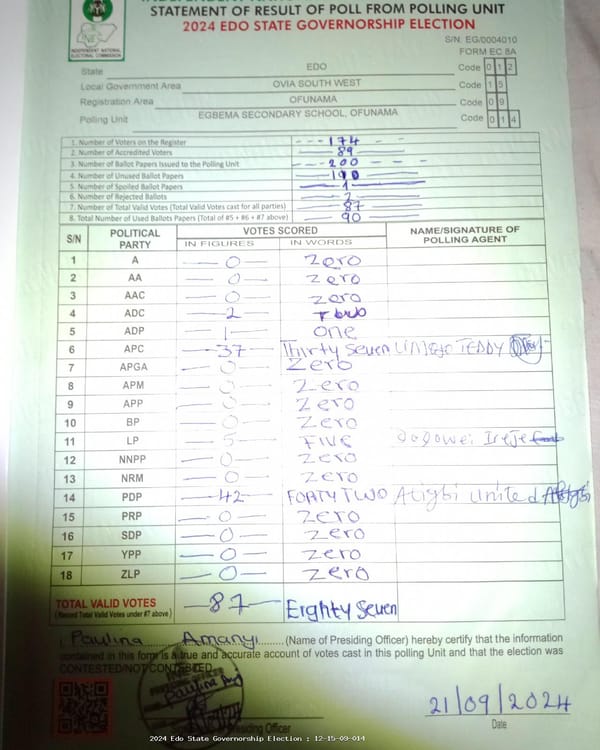 STATEMENT OF RESULT OF POLL FROM POLLING UNIT
2024 EDO STATE GOVERNORSHIP ELECTION
INDEPENDENT NATIONAL ELECTORAL COMMISSION
S/N. EG/0004010
FORM EC 8A
State EDO Code 0 1 2
Local Government Area OVIA SOUTH WEST Code 1 5
Registration Area OFUNAMA Code 0 9
Polling Unit EGBEMA SECONDARY SCHOOL, OFUNAMA Code 0 1 4
1. Number of Voters on the Register 174
2. Number of Accredited Voters 89
3. Number of Ballot Papers Issued to the Polling Unit 200
4. Number of Unused Ballot Papers 110
5. Number of Spoiled Ballot Papers 1
6. Number of Rejected Ballots 2
7. Number of Total Valid Votes (Total Valid Votes cast for all parties) 87
8. Total Number of Used Ballots Papers (Total of #5 + #6 + #7 above) 90
S/N POLITICAL PARTY VOTES SCORED NAME/SIGNATURE OF POLLING AGENT
IN FIGURES IN WORDS
1 A 0 Zero
2 AA 0 Zero
3 AAC 0 Zero
4 ADC 2 Two
5 ADP 1 One
6 APC 37 Thirty Seven TEDDY
7 APGA 0 Zero
8 APM 0 Zero
9 APP 0 Zero
10 BP 0 Zero
11 LP 5 FIVE
12 NNPP 0 Zero
13 NRM 0 Zero
14 PDP 42 FORTY TWO Atigbi united
15 PRP 0 Zero
16 SDP 0 Zero
17 YPP 0 Zero
18 ZLP 0 Zero
TOTAL VALID VOTES 87 Eighty Seven
(Record Total Valid Votes under #7 above)
I, Paulina Amanyi (Name of Presiding Officer) hereby certify that the information
contained in this form is a true and accurate account of votes cast in this polling Unit and that the election was
CONTESTED/NOT CONTESTED
21/09/2024
Presiding Officer Date
2024 Edo State Governorship Election : 12-15-09-014